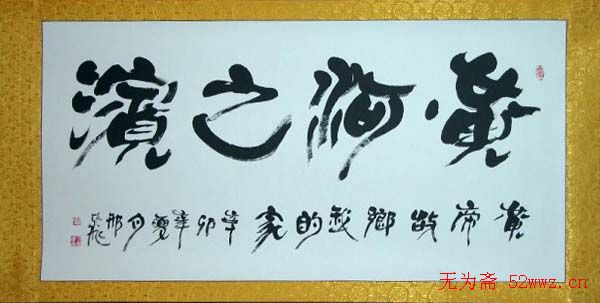 黄河之濱
黄帝故鄉我的家 辛卯年夏月
无为斋 52wwz.cn